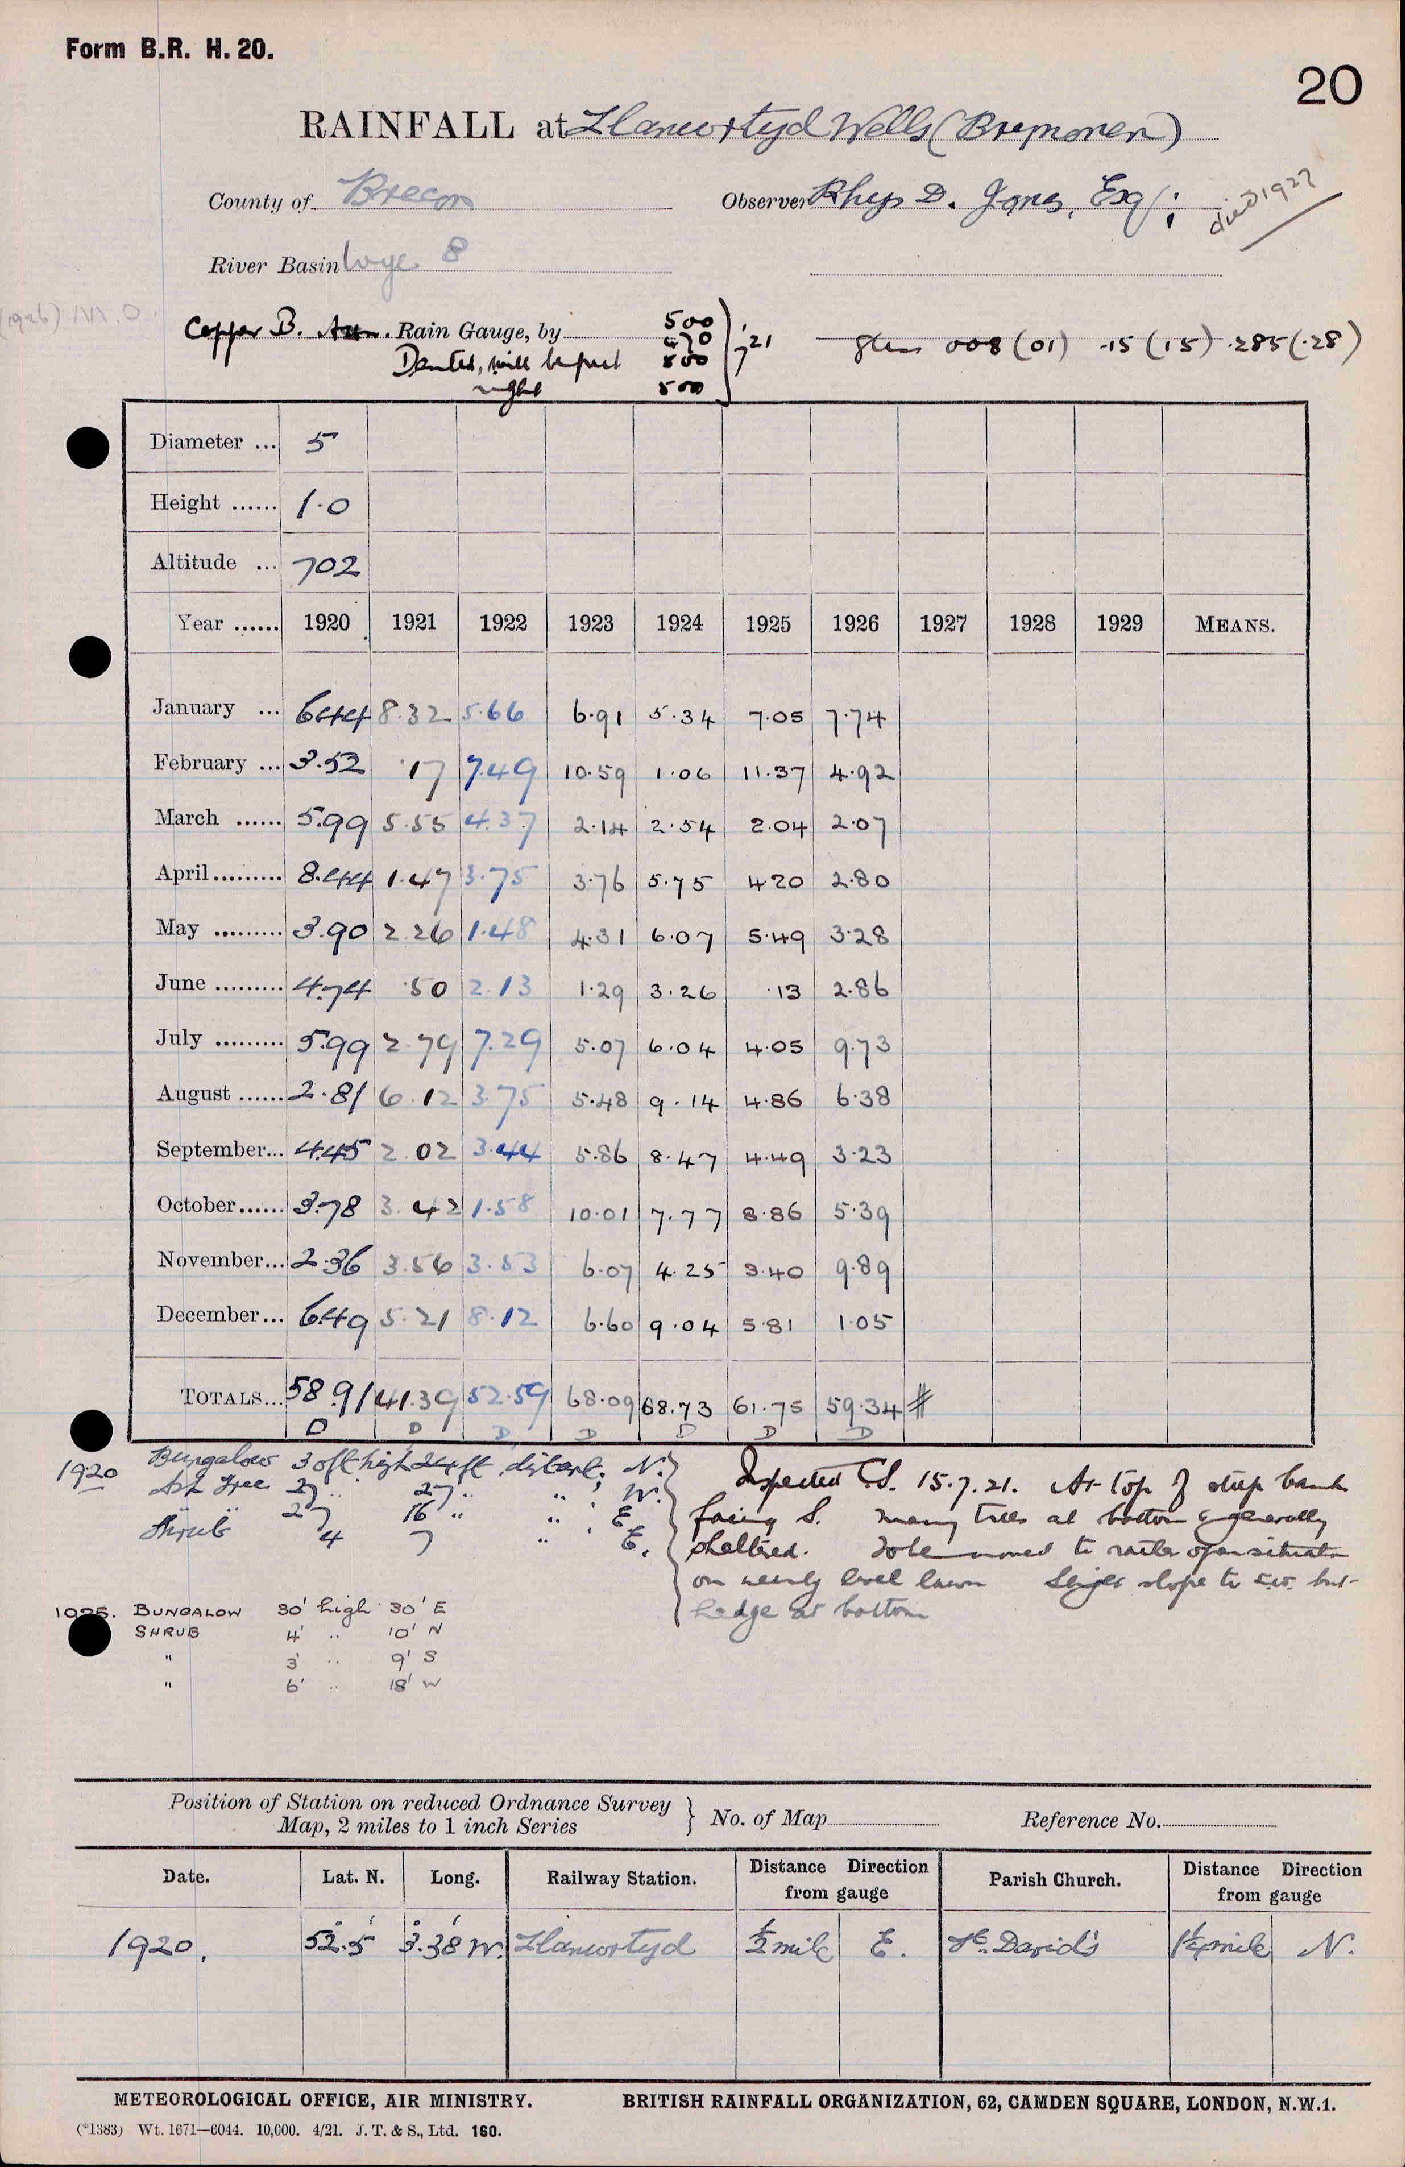 Form B.R. H. 20.
20
RAINFALL at Llanwrtyd Wells (Brynonen)
County of Brecon Observer Rhys D. Jones, Esq; died 1927
River Basin Wye 8
(1926) M.O.
Copper B. Rain Gauge, by 500
Dented, will be put 470
right 500
500
'21 glass 008 (01) .15 (15) .285 (.28)
Diameter ... 5
Height ...... 1.0
Altitude ... 702
Year ...... 1920 1921 1922 1923 1924 1925 1926 1927 1928 1929 MEANS.
January ... 6.44 8.32 5.66 6.91 5.34 7.05 7.74
February ... 3.52 .17 7.49 10.59 1.06 11.37 4.92
March ...... 5.99 5.55 4.37 2.14 2.54 2.04 2.07
April ......... 8.44 1.47 3.75 3.76 5.75 4.20 2.80
May ......... 3.90 2.26 1.48 4.31 6.07 5.49 3.28
June ......... 4.74 .50 2.13 1.29 3.26 .13 2.86
July ......... 5.99 2.79 7.29 5.07 6.04 4.05 9.73
August ...... 2.81 6.12 3.75 5.48 9.14 4.86 6.38
September... 4.45 2.02 3.44 5.86 8.47 4.49 3.23
October ...... 3.78 3.42 1.58 10.01 7.77 8.86 5.39
November... 2.36 3.56 3.53 6.07 4.25 3.40 9.89
December... 6.49 5.21 8.12 6.60 9.04 5.81 1.05
TOTALS... 58.91 41.39 52.59 68.09 68.73 61.75 59.34 #
D D D D D D D
1920 Bungalow 30ft high 24ft distant N.
Ash Tree 27 .. 27 .. .. W.
.. .. 27 16 .. .. E.
Shrub 4 7 .. E.
Inspected C.S. 15.7.21. At top of steep bank
facing S. many trees at bottom & generally
sheltered. To be moved to rather open situatn
on nearly level lawn slope to S.W. but
hedge at bottom
1925. BUNGALOW 30' high 30' E
SHRUB 4' .. 10' N
" 3' .. 9' S
" 6' .. 18' W
Position of Station on reduced Ordnance Survey
Map, 2 miles to 1 inch Series } No. of Map Reference No.
Date. Lat. N. Long. Railway Station. Distance Direction from gauge Parish Church. Distance Direction from gauge
1920. 52°.5' 3°.38' W. Llanwrtyd ½ mile E. St. David's 1¼ mile N.
METEOROLOGICAL OFFICE, AIR MINISTRY. BRITISH RAINFALL ORGANIZATION, 62, CAMDEN SQUARE, LONDON, N.W.1.
(*1383) Wt. 1671—6044. 10,000. 4/21. J. T. & S., Ltd. 160.